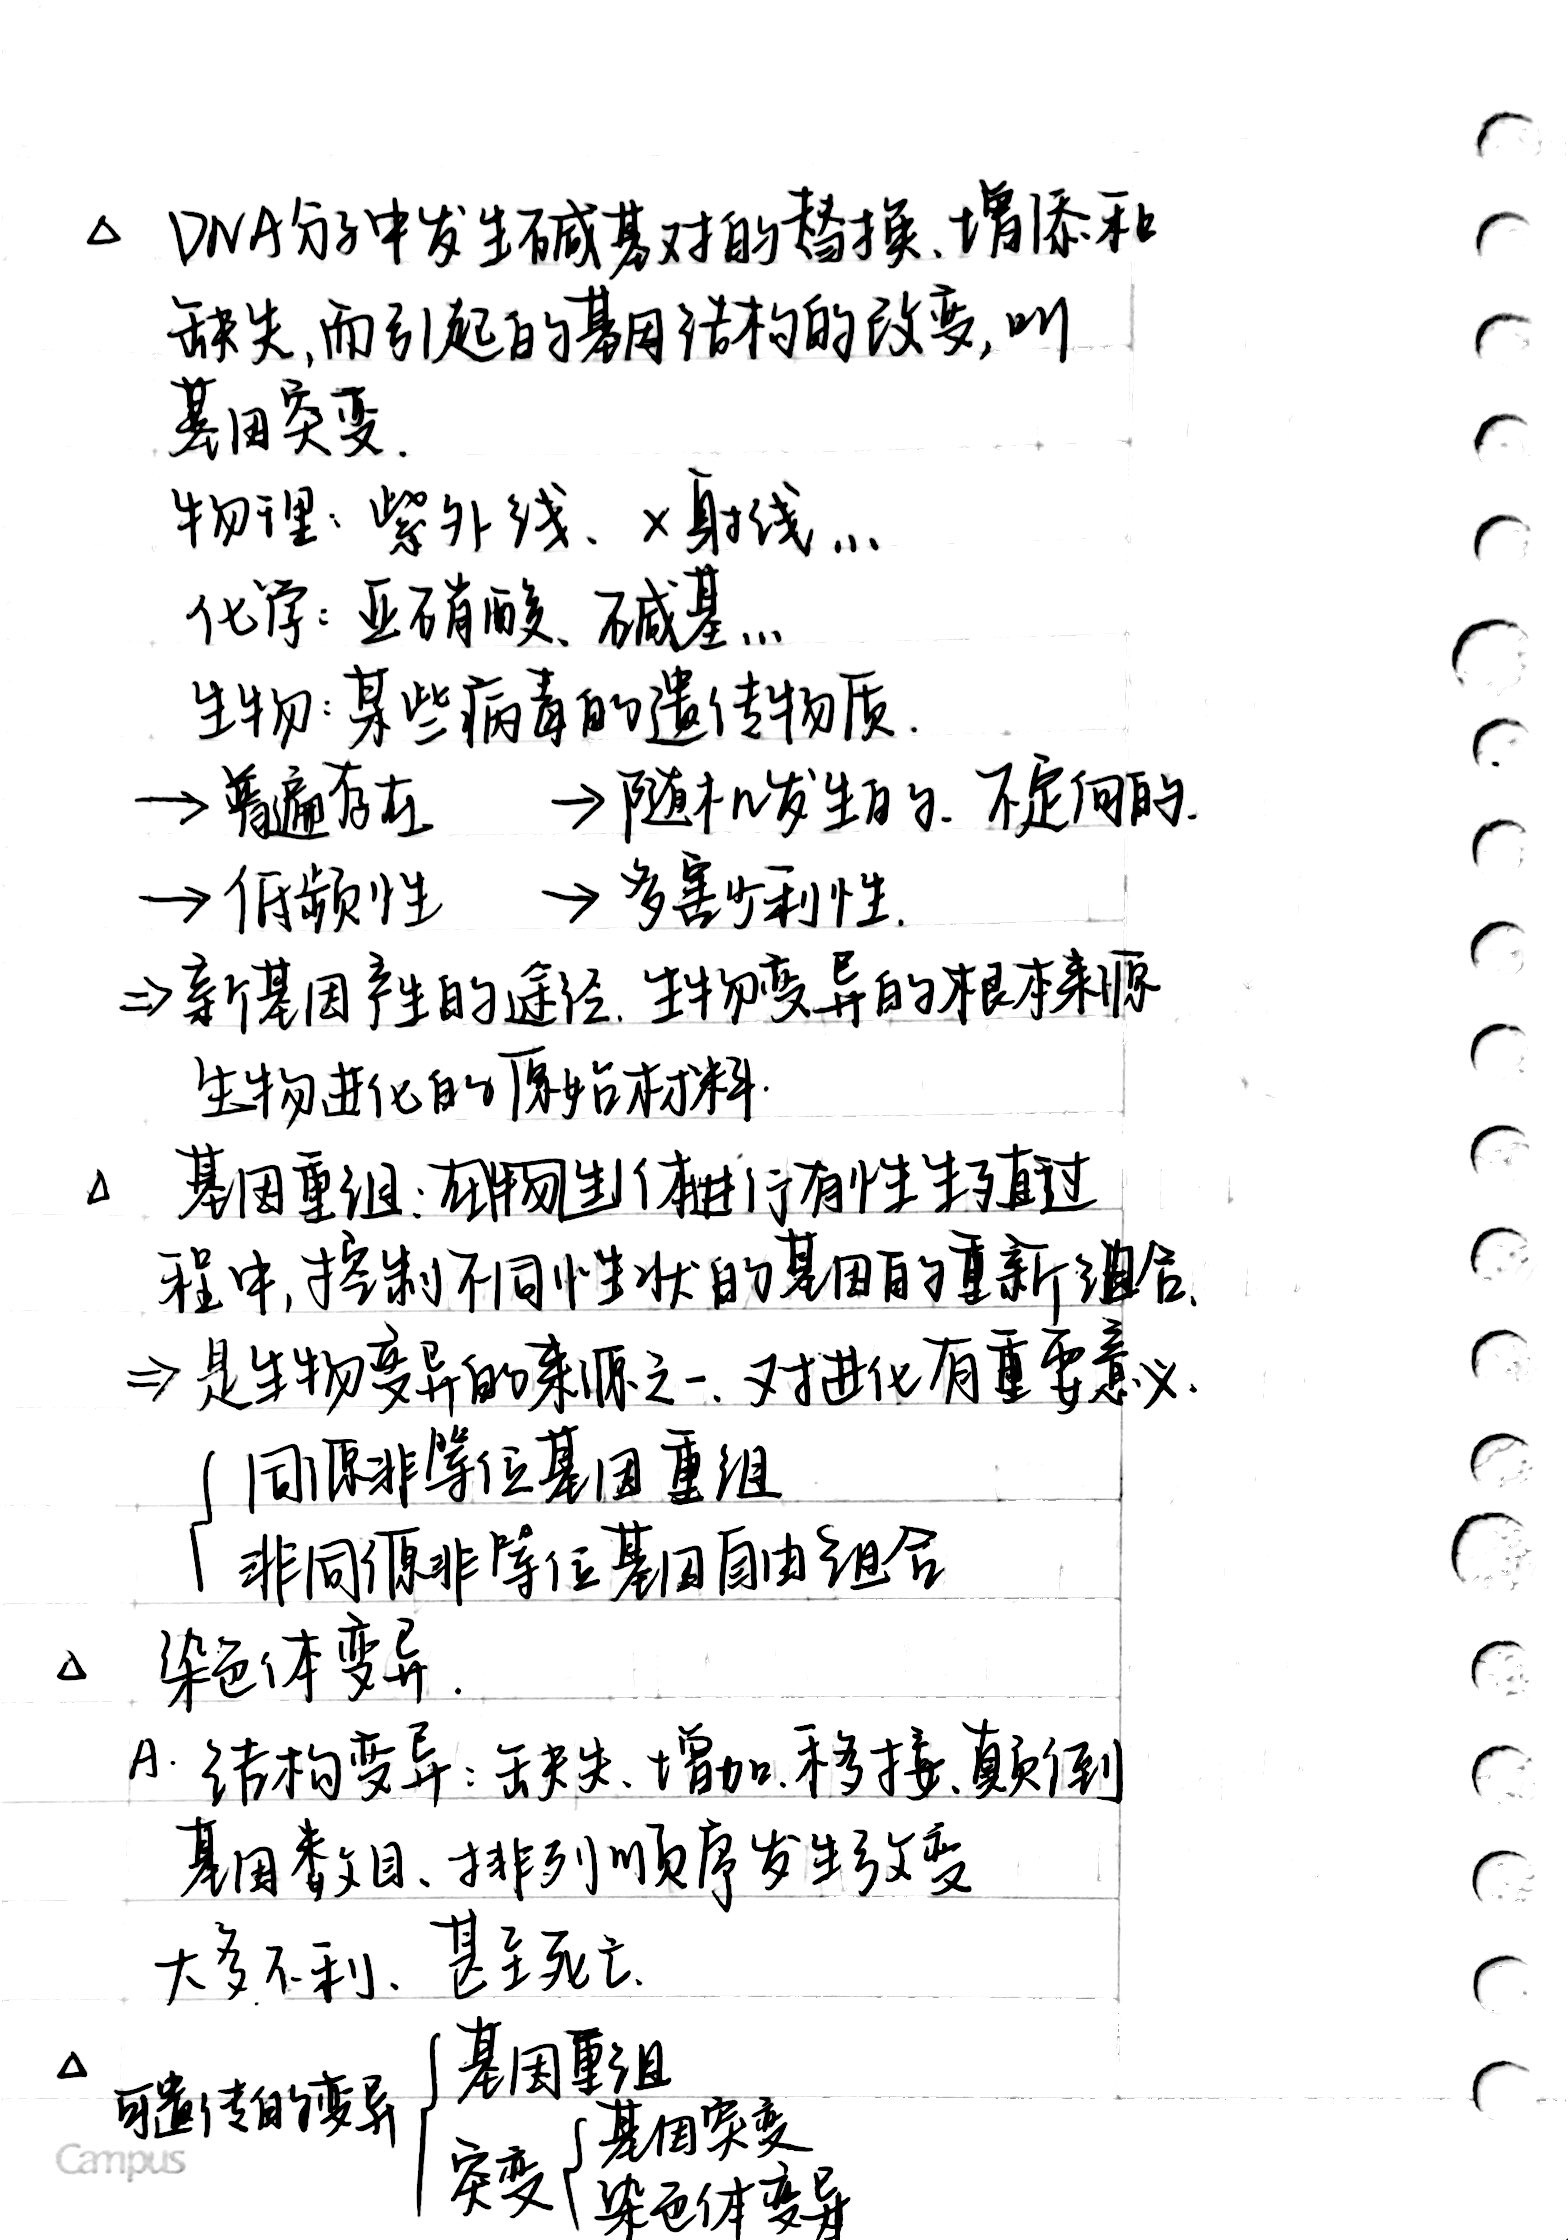 △ DNA分子中发生碱基对的替换、增添和
缺失,而引起的基因结构的改变,叫
基因突变.
物理:紫外线、X射线...
化学:亚硝酸、碱基...
生物:某些病毒的遗传物质.
→普遍存在 →随机发生的、不定向的.
→低频性 →多害少利性.
⇒新基因产生的途径.生物变异的根本来源
生物进化的原始材料.
△ 基因重组:在物生体进行有性生殖过
程中,控制不同性状的基因的重新组合.
⇒是生物变异的来源之一.对进化有重要意义.
同源非等位基因重组
非同源非等位基因自由组合
△ 染色体变异.
A.结构变异:缺失、增加、移接、颠倒
基因数目、排列顺序发生改变
大多不利、甚至死亡.
△ 可遗传的变异
基因重组
突变
基因突变
染色体变异
Campus